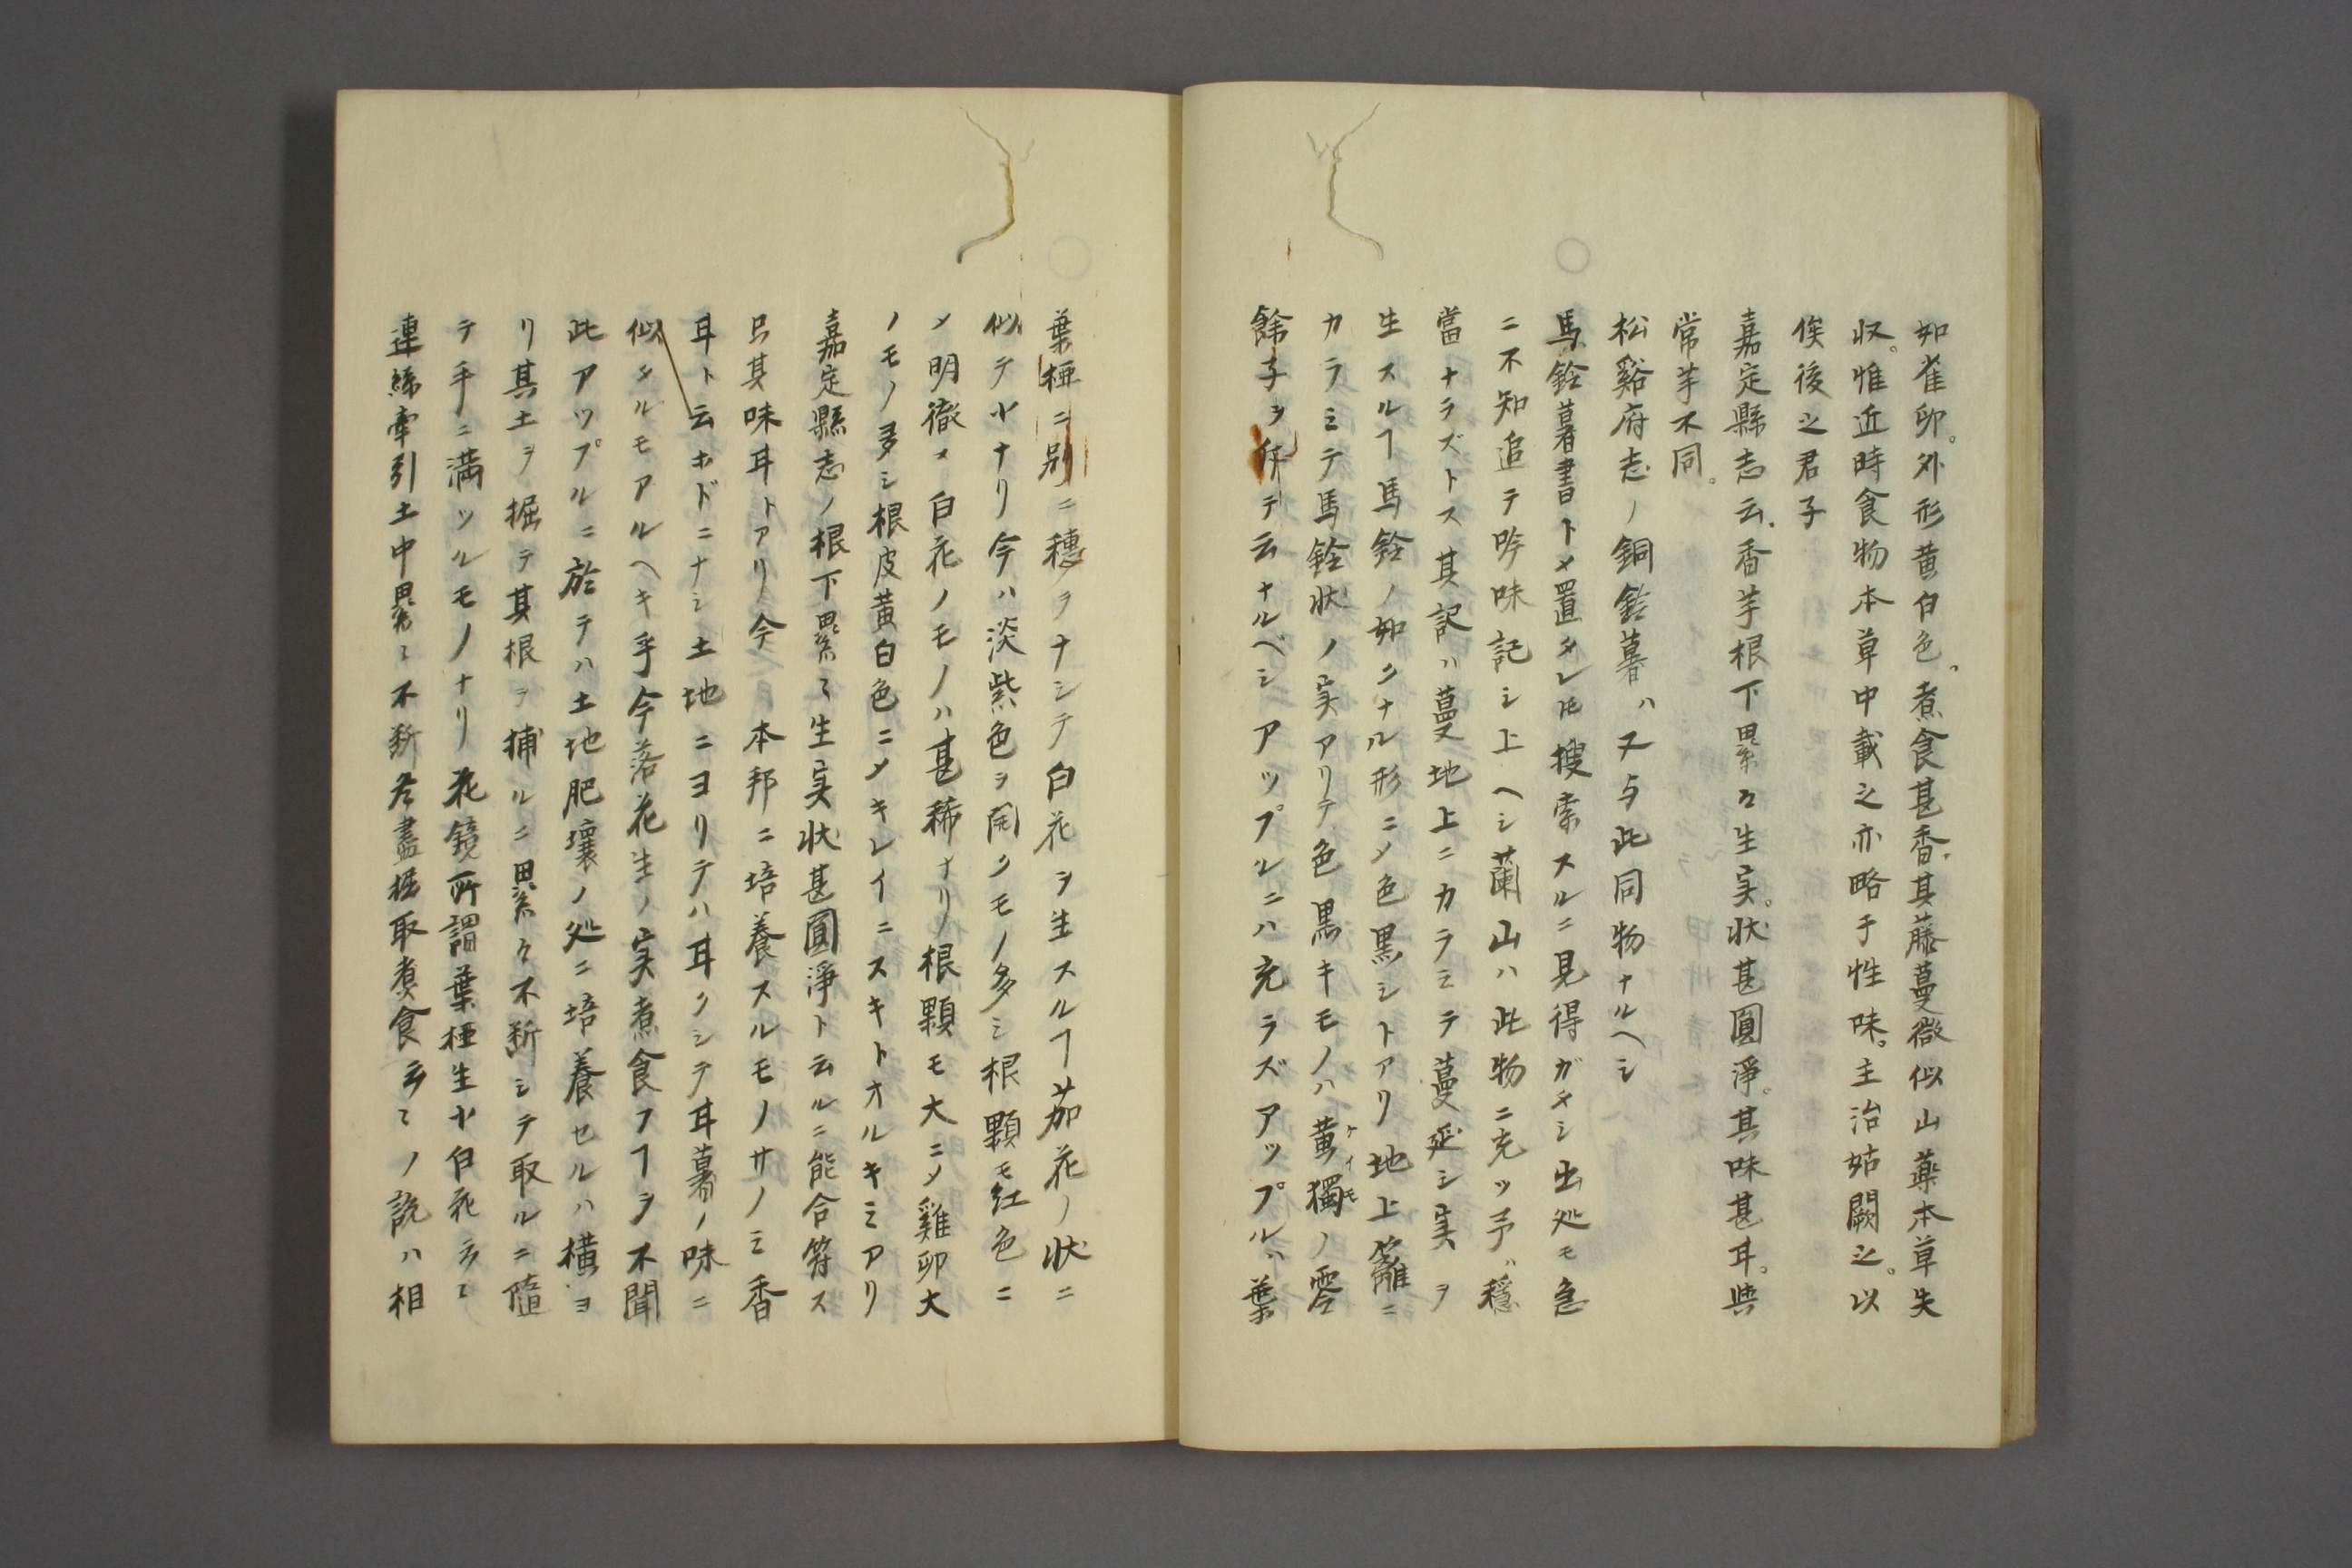 如雀卵。外形黄白色。煮食甚香。其藤蔓微似山薬本草失
収。惟近時食物本草中載之亦略于性味。主治姑闕之。以
俟後之君子
嘉定縣志云。香芋根下累々生実。状甚圓淨。其味甚耳。与
常芋不同。
松谿府志ノ銅鈴薯ハ又与此同物ナルヘシ
馬鈴薯書トメ置タレ𪜈捜索スルニ見得ガタシ出処モ急
ニ不知追テ吟味記シ上ヘシ蘭山ハ此物ニ充ツ予ハ穏
當ナラズトス其訳ハ蔓地上ニカラミテ蔓延シ実ヲ
生スルヿ馬鈴ノ如クナル形ニメ色黒シトアリ地上籬ニ
カラミテ馬鈴状ノ実アリテ色黒キモノハ黄獨ノ零
餘子ヲ所テ云ナルベシアップルニハ充ラズアップルハ葉
葉極ニ別ニ穂ヲナシテ白花ヲ生スルヿ茄花ノ状ニ
似テ小ナリ今ハ淡紫色ヲ開クモノ多シ根顆モ紅色ニ
メ明徹ス白花ノモノハ甚稀ナリ根顆モ大ニメ雞卵大
ノモノ多シ根皮黄白色ニメキレイニスキトオルキミアリ
嘉定縣志ノ根下累々生実状甚圓淨ト云ルニ能合符ス
只其味耳トアリ今本邦ニ培養スルモノサノミ香
耳ト云ホドニナシ土地ニヨリテハ耳クシテ耳薯ノ味ニ
似タルモアルヘキ乎今落花生ノ実煮食フヿヲ不聞
此アップルニ於テハ土地肥壤ノ処ニ培養セルハ横ヨ
リ其土ヲ掘テ其根ヲ捕ルニ累々不断シテ取ルニ随
テ手ニ満ツルモノナリ花鏡所謂葉極生小白花云々
連綿牽引土中累々不断冬盡掘取煮食云々ノ説ハ相